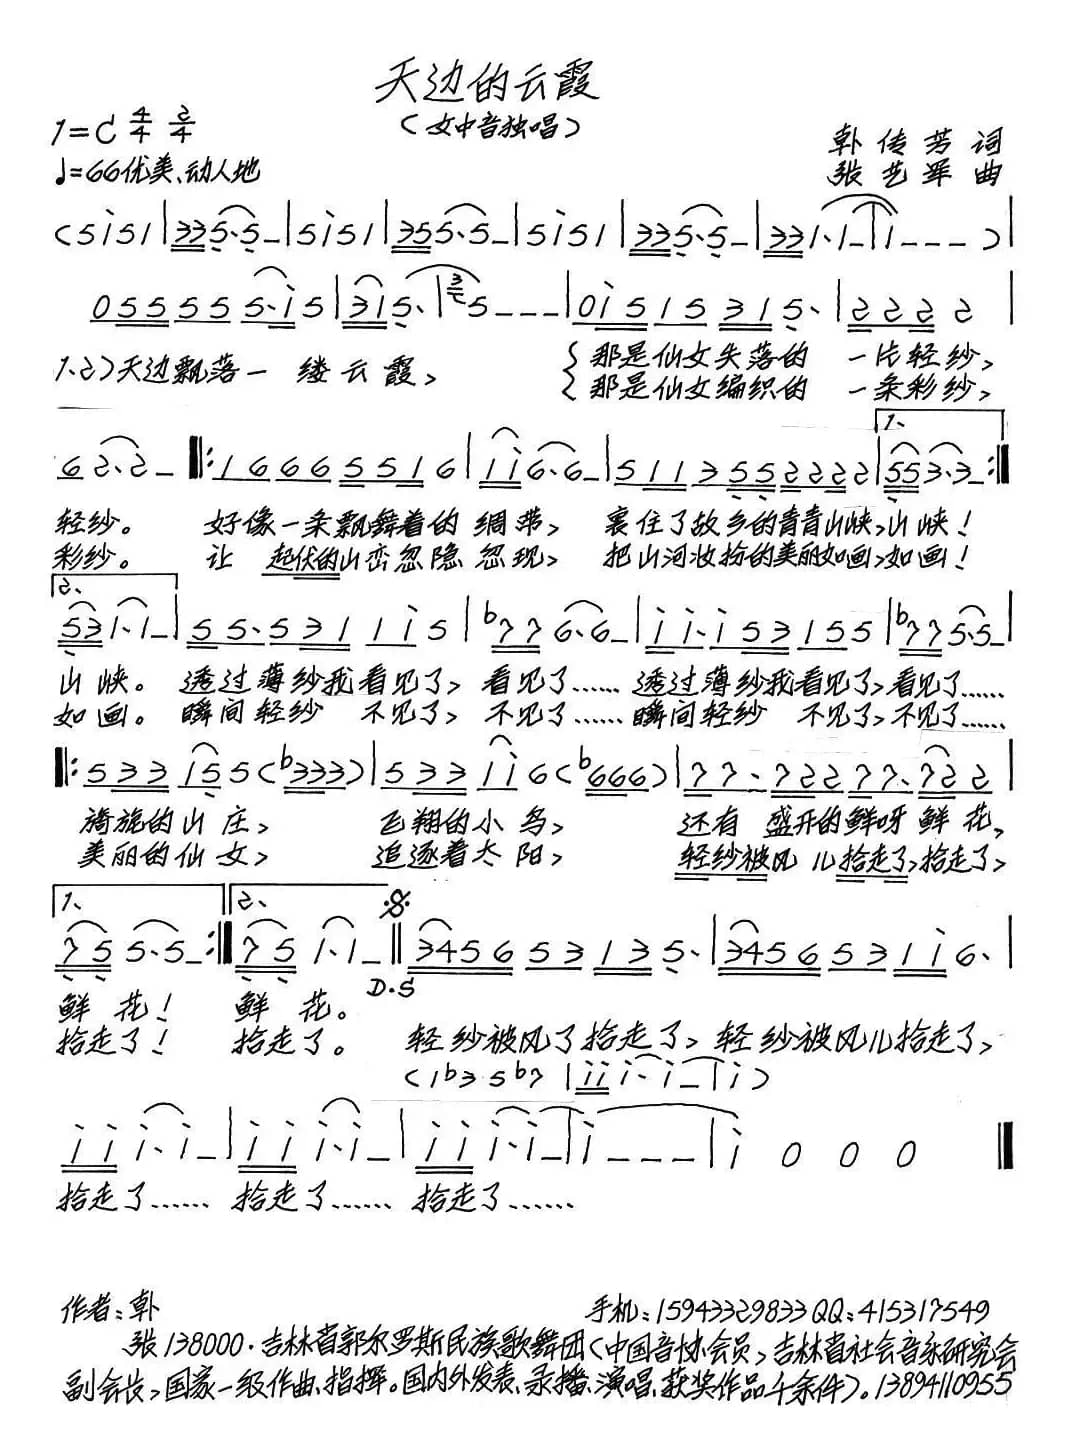 天边的云霞
(女中音独唱)
1=C 4/4 2/4
♩=66优美、动人地
韩 传 芳 词
张 艺 军 曲
(5i51|335·5·–|5i51|355·5·–|5i51|335·5·–|331·1–|1–––)|
05555 55·i5|315·|5–––|0i5151 5315·|2222 2|
1.2)天边飘落一 缕云霞,
那是仙女失落的 一片轻纱,
那是仙女编织的 一条彩纱,
1.
62·2–‖:16665516|ii6·6–|5113552222|553·3–:‖
轻纱。 好像一条飘舞着的 绸带, 裹住了故乡的青青山峡,山峡!
彩纱。 让 起伏的山峦忽隐忽现, 把山河妆扮的美丽如画,如画!
2.
531·1–|55·53111i5|b776·6–|ii·i53155|b775·5–|
山 峡。 透过薄纱我看见了, 看见了…… 透过薄纱我看见了,看见了……
如 画。 瞬间轻纱 不见了, 不见了…… 瞬间轻纱 不见了,不见了……
‖:533i55(b333)|5331i6(b666)|77·72277·722|
旖旎的山 庄, 飞翔的小 鸟, 还有 盛开的鲜呀鲜 花,
美丽的仙 女, 追逐着太 阳, 轻纱被风 儿拾走了,拾走了,
1. 2. 𝄋
755·5–:‖751·1–‖345653135·|3456531i6·|
D.S
鲜 花! 鲜 花。
拾走了! 拾走了。 轻纱被风了拾走了, 轻纱被风儿拾走了,
(1b3·5b7|iii·i–|i)
iii·i–|iii·i–|iii·i–|i–––|i000‖
拾走了…… 拾走了…… 拾走了……
作者:韩 手机:15943329833QQ:415317549
张138000·吉林省郭尔罗斯民族歌舞团(中国音协会员,吉林省社会音乐研究会
副会长,国家一级作曲、指挥。国内外发表、录播、演唱、获奖作品千余件)。13894110955